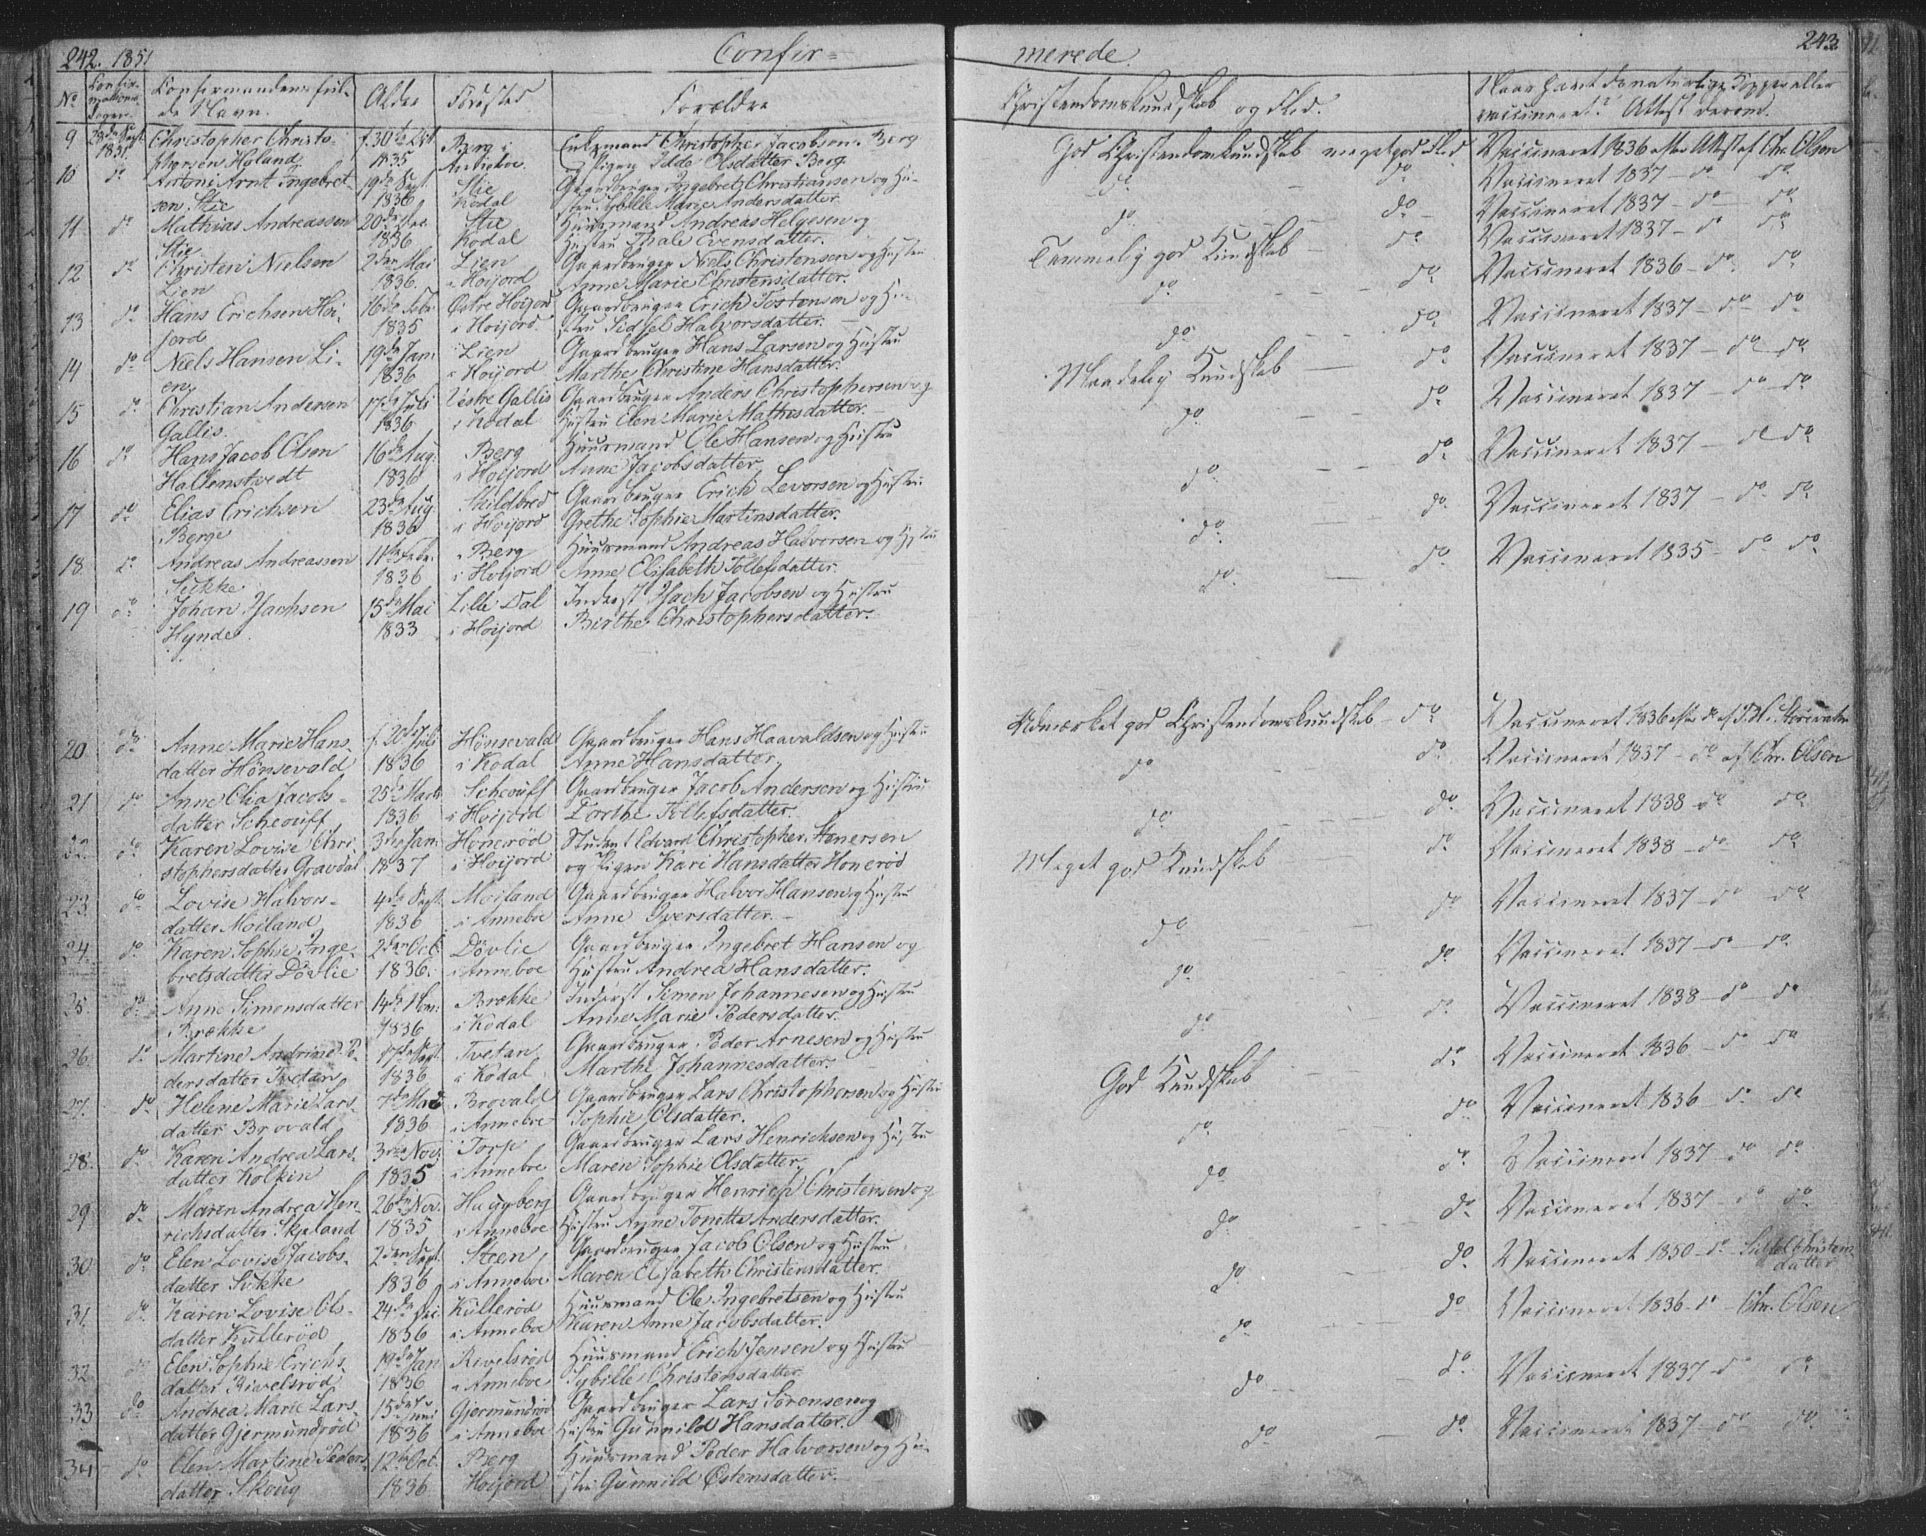 242. 1851
Confir=
No Confir-
mations
Dagen. Confirmandens ful-
de Navn. Alder Fødested Forældre
9 28de Sept.
1851. Christopher Christo-
phersen Høland f. 30te
1835 Berg i
Andeboe. Enkemand Christopher Jacobsen Berg
og Pigen Ilde Olsdatter Berg.
10 do Antoni Arnt Ingebret-
sen Stie 19de Sept.
1836 Stie
Kodal Gaardbruger Ingebret Christiansen og Hu-
stru Sybille Marie Andersdatter.
11 do Mathias Andreassen
Stie 20de Dec.
1836 Stie
Kodal Huusmand Andreas Helgesen og
Hustru Thale Evensdatter.
12 do Christen Nielsen
Lien 2den Mai
1836. Lien
i Hoijord Gaardbruger Niels Christensen og Hustru
Anne Marie Christensdatter.
13 do Hans Erichsen Hoi-
jord 16de Febr.
1835 Østre Hoijord
i Hoijord. Gaardbruger Erich Torstensen og Hu-
stru Sidsel Halvorsdatter.
14 do Niels Hansen Li-
en 19de Jan.
1836 Lien
i Hoijord Gaardbruger Hans Larsen og Hustru
Marthe Christine Hansdatter.
15 do Christian Andersen
Gallis. 17de Juli
1836 Vestre Gallis
i Kodal Gaardbruger Anders Christophersen og
Hustru Elen Marie Mathisdatter.
16 do Hans Jacob Olsen
Hallenstvedt 16de Aug.
1836 Berg
i Hoijord Huusmand Ole Hansen og Hustru
Anne Jacobsdatter
17 do Elias Erichsen
Berge 23de Aug.
1836 Skildbred
i Hoijord Gaardbruger Erich Levorsen og Hustru
Grethe Sophie Martinsdatter.
18. do Andreas Andreassen
Sukke. 11te Febr.
1836 Berg
i Hoijord Huusmand Andreas Halvorsen og Hustru
Anne Elisabeth Tollefsdatter.
19 do Johan Isachsen
Hynde. 15de Mai
1833 Lille Dal
i Hoijord Inderst Isach Jacobsen og Hustru
Birthe Christophersdatter.
20. do Anne Marie Hans-
datter Hønsevald f. 20de Juli
1836 Hønsevald
i Kodal Gaardbruger Hans Haavaldsen og Hustru
Anne Hansdatter
21 do Anne Elia Jacobs-
datter Scheouff 25de Marts
1836 Scheouff
i Hoijord Gaardbruger Jacob Andersen og Hustru
Dorthe Tollefsdatter.
22. do Karen Lovise Chri-
stophersdatter Gravdal 3die Jan.
1837 Honerød
i Hoijord Student Edvard Christopher Stenersen
og Pigen Kari Hansdatter Honerød
23. do Lovise Halvors-
datter Moiland 4de Sept.
1836 Moiland
i Anneboe Gaardbruger Halvor Hansen og Hustru
Anne Iversdatter.
24. do Karen Sophie Inge-
bretsdatter Døvlie 2den Oct.
1836. Døvlie
i Anneboe Gaardbruger Ingebret Hansen og
Hustru Andrea Hansdatter.
25. do Anne Simonsdatter
Brække 14de Nov.
1836 Brække
i Kodal Inderst Simen Johannesen og Hustru
Anne Marie Pedersdatter.
26. do Martine Andrine Pe-
dersdatter Tvetan 17de Sept.
1836 Tvetan
i Kodal Gaardbruger Peder Arnesen og Hustru
Marthe Johannesdatter.
27. do Helene Marie Lars-
datter Brovald 7de Mai
1836 Brovald
i Anneboe Gaardbruger Lars Christophersen og Hustru
Sophie Olsdatter.
28. do Karen Andrea Lars-
datter Kolkin 3die Nov.
1835 Torp
i Anneboe Gaardbruger Lars Henrichsen og Hustru
Maren Sophie Olsdatter.
29 do Maren Andrea Hen-
richsdatter Skjeland 26de Nov.
1835 Haugberg
i Anneboe Gaardbruger Henrich Christensen og
Hustru Anne Tonette Andersdatter.
30 do Elen Lovise Jacobs-
datter Sukke 2den Sept.
1836 Steen
i Anneboe Gaardbruger Jacob Olsen og Hustru
Maren Elisabeth Christensdatter.
31. do Karen Lovise Ols-
datter Kullerød 24de Dec.
1836 Kullerød
i Anneboe Huusmand Ole Ingebretsen og Hustru
Karen Anne Jacobsdatter.
32 do Elen Sophie Erichs-
datter Rivelsrød 19de Jan.
1836 Rivelsrød
i Anneboe Huusmand Erich Jensen og Hustru
Sybille Christensdatter
33 do Andrea Marie Lars-
datter Gjermundrød 15de Juni
1836 Gjermundrød
i Anneboe Gaardbruger Lars Sørensen og
Hustru Gunnild Hansdatter.
34 do Elen Martine Peders-
datter Skoug 12te Oct.
1836 Berg
Hoijord Huusmand Peder Halvorsen og Hu-
stru Gunnild Østensdatter.
243
merede.
Christendomskundskab og Flid.
Naar havt de naturlige Kopper eller
vaccineret? Attest derom.
God Christendomskundskab meget god Flid Vaccineret 1836 efter Attest af Chr. Olsen
do do Vaccineret 1837 - do do
do do Vaccineret 1837 - do do
Temmelig god Kundskab - do Vaccineret 1837 - do do
do do Vaccineret 1836 - do do
do do Vaccineret 1837 - do do
Maadelig Kundskab do Vaccineret 1837 - do do
do do Vaccineret 1837 - do do
do do Vaccineret 1837 - do do
do do Vaccineret 1837 - do do
do do Vaccineret 1835 - do do
Udmærket god Christendomskundskab - do Vaccineret 1836 efter do af
do do Vaccineret 1837 - do af Chr. Olsen
do do Vaccineret 1838 do do
Meget god Kundskab do Vaccineret 1838 - do do
do do Vaccineret 1837 - do do
do do Vaccineret 1837 - do do
do do Vaccineret 1838 - do do
God Kundskab do Vaccineret 1836 - do do
do do Vaccineret 1836 - do do
do do Vaccineret 1837 - do do
do do Vaccineret 1837 - do do
do do Vaccineret 1850 - do Sidsel Christens-
datter
do do Vaccineret 1836 - do - Chr. Olsen
do do Vaccineret 1837 - do do
do do Vaccineret 1837 - do do